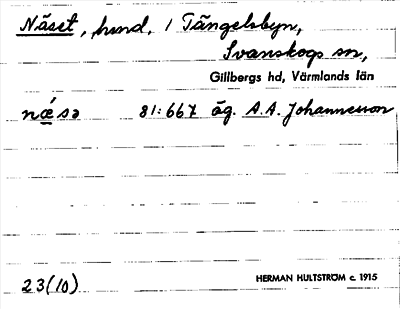 Näset, hmnd, i Tängelsbyn,
Svanskogs sn,
Gillbergs hd, Värmlands län
næ̀sə 81:667 äg. A.A. Johannesson
23(10) HERMAN HULTSTRÖM c. 1915